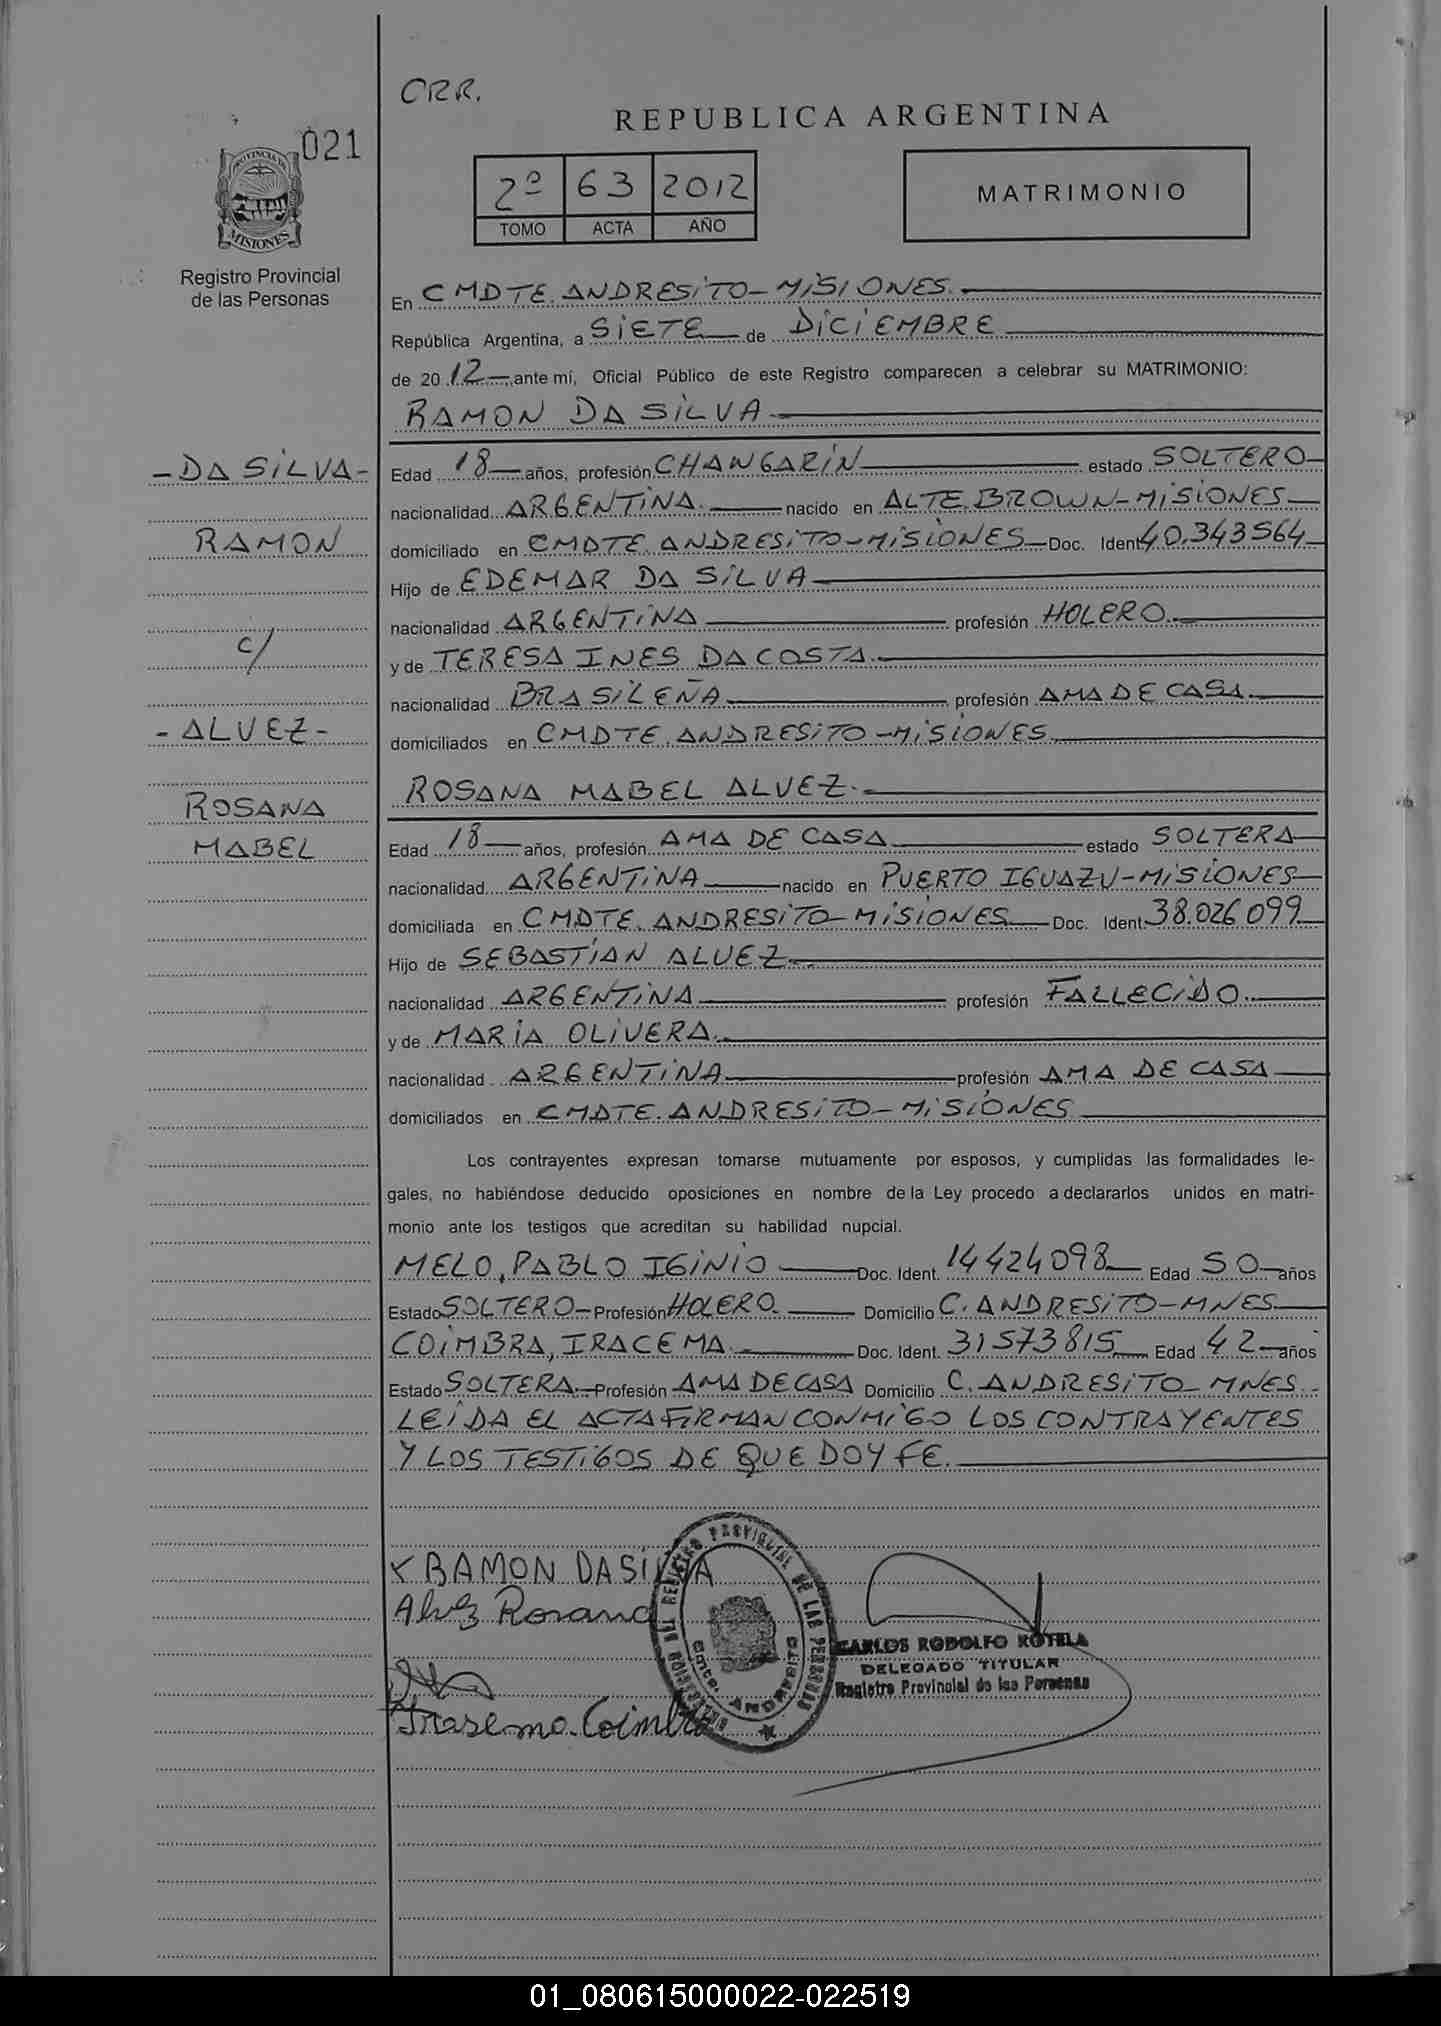 CRR.
021
REPUBLICA ARGENTINA
2º 63 2012
TOMO ACTA AÑO
MATRIMONIO
PROVINCIA DE
MISIONES
Registro Provincial
de las Personas
En CMDTE. ANDRESITO - MISIONES.
República Argentina, a SIETE de DICIEMBRE
de 20 12 ante mí, Oficial Público de este Registro comparecen a celebrar su MATRIMONIO:
RAMON DA SILVA
- DA SILVA -
RAMON
c/
- ALVEZ -
ROSANA
MABEL
Edad 18 años, profesión CHANGARIN estado SOLTERO
nacionalidad ARGENTINA. nacido en ALTE. BROWN - MISIONES
domiciliado en CMDTE. ANDRESITO - MISIONES Doc. Ident 40.343564
Hijo de EDEMAR DA SILVA
nacionalidad ARGENTINA profesión HOLERO.
y de TERESA INES DA COSTA.
nacionalidad BRASILEÑA profesión AMA DE CASA
domiciliados en CMDTE. ANDRESITO - MISIONES
ROSANA MABEL ALVEZ.
Edad 18 años, profesión AMA DE CASA estado SOLTERA
nacionalidad ARGENTINA nacido en PUERTO IGUAZU - MISIONES
domiciliada en CMDTE. ANDRESITO - MISIONES Doc. Ident. 38.026099
Hijo de SEBASTIAN ALVEZ
nacionalidad ARGENTINA profesión FALLECIDO.
y de MARIA OLIVERA.
nacionalidad ARGENTINA profesión AMA DE CASA
domiciliados en CMDTE. ANDRESITO - MISIONES
Los contrayentes expresan tomarse mutuamente por esposos, y cumplidas las formalidades le-
gales, no habiéndose deducido oposiciones en nombre de la Ley procedo a declararlos unidos en matri-
monio ante los testigos que acreditan su habilidad nupcial.
MELO, PABLO IGINIO Doc. Ident. 14424098 Edad 50 años
Estado SOLTERO - Profesión HOLERO. Domicilio C. ANDRESITO - MNES
COIMBRA, IRACEMA. Doc. Ident. 31573815 Edad 42 años
Estado SOLTERA. Profesión AMA DE CASA Domicilio C. ANDRESITO - MNES.
LEIDA EL ACTA FIRMAN CONMIGO LOS CONTRAYENTES
Y LOS TESTIGOS DE QUE DOY FE.
RAMON DA SILVA
Alvez Rosana
DELEGACION DEL REGISTRO PROVINCIAL DE LAS PERSONAS
Cmte. ANDRESITO
CARLOS RODOLFO ROTELA
DELEGADO TITULAR
Registro Provincial de las Personas
Irasema Coimbra
01_080615000022-022519